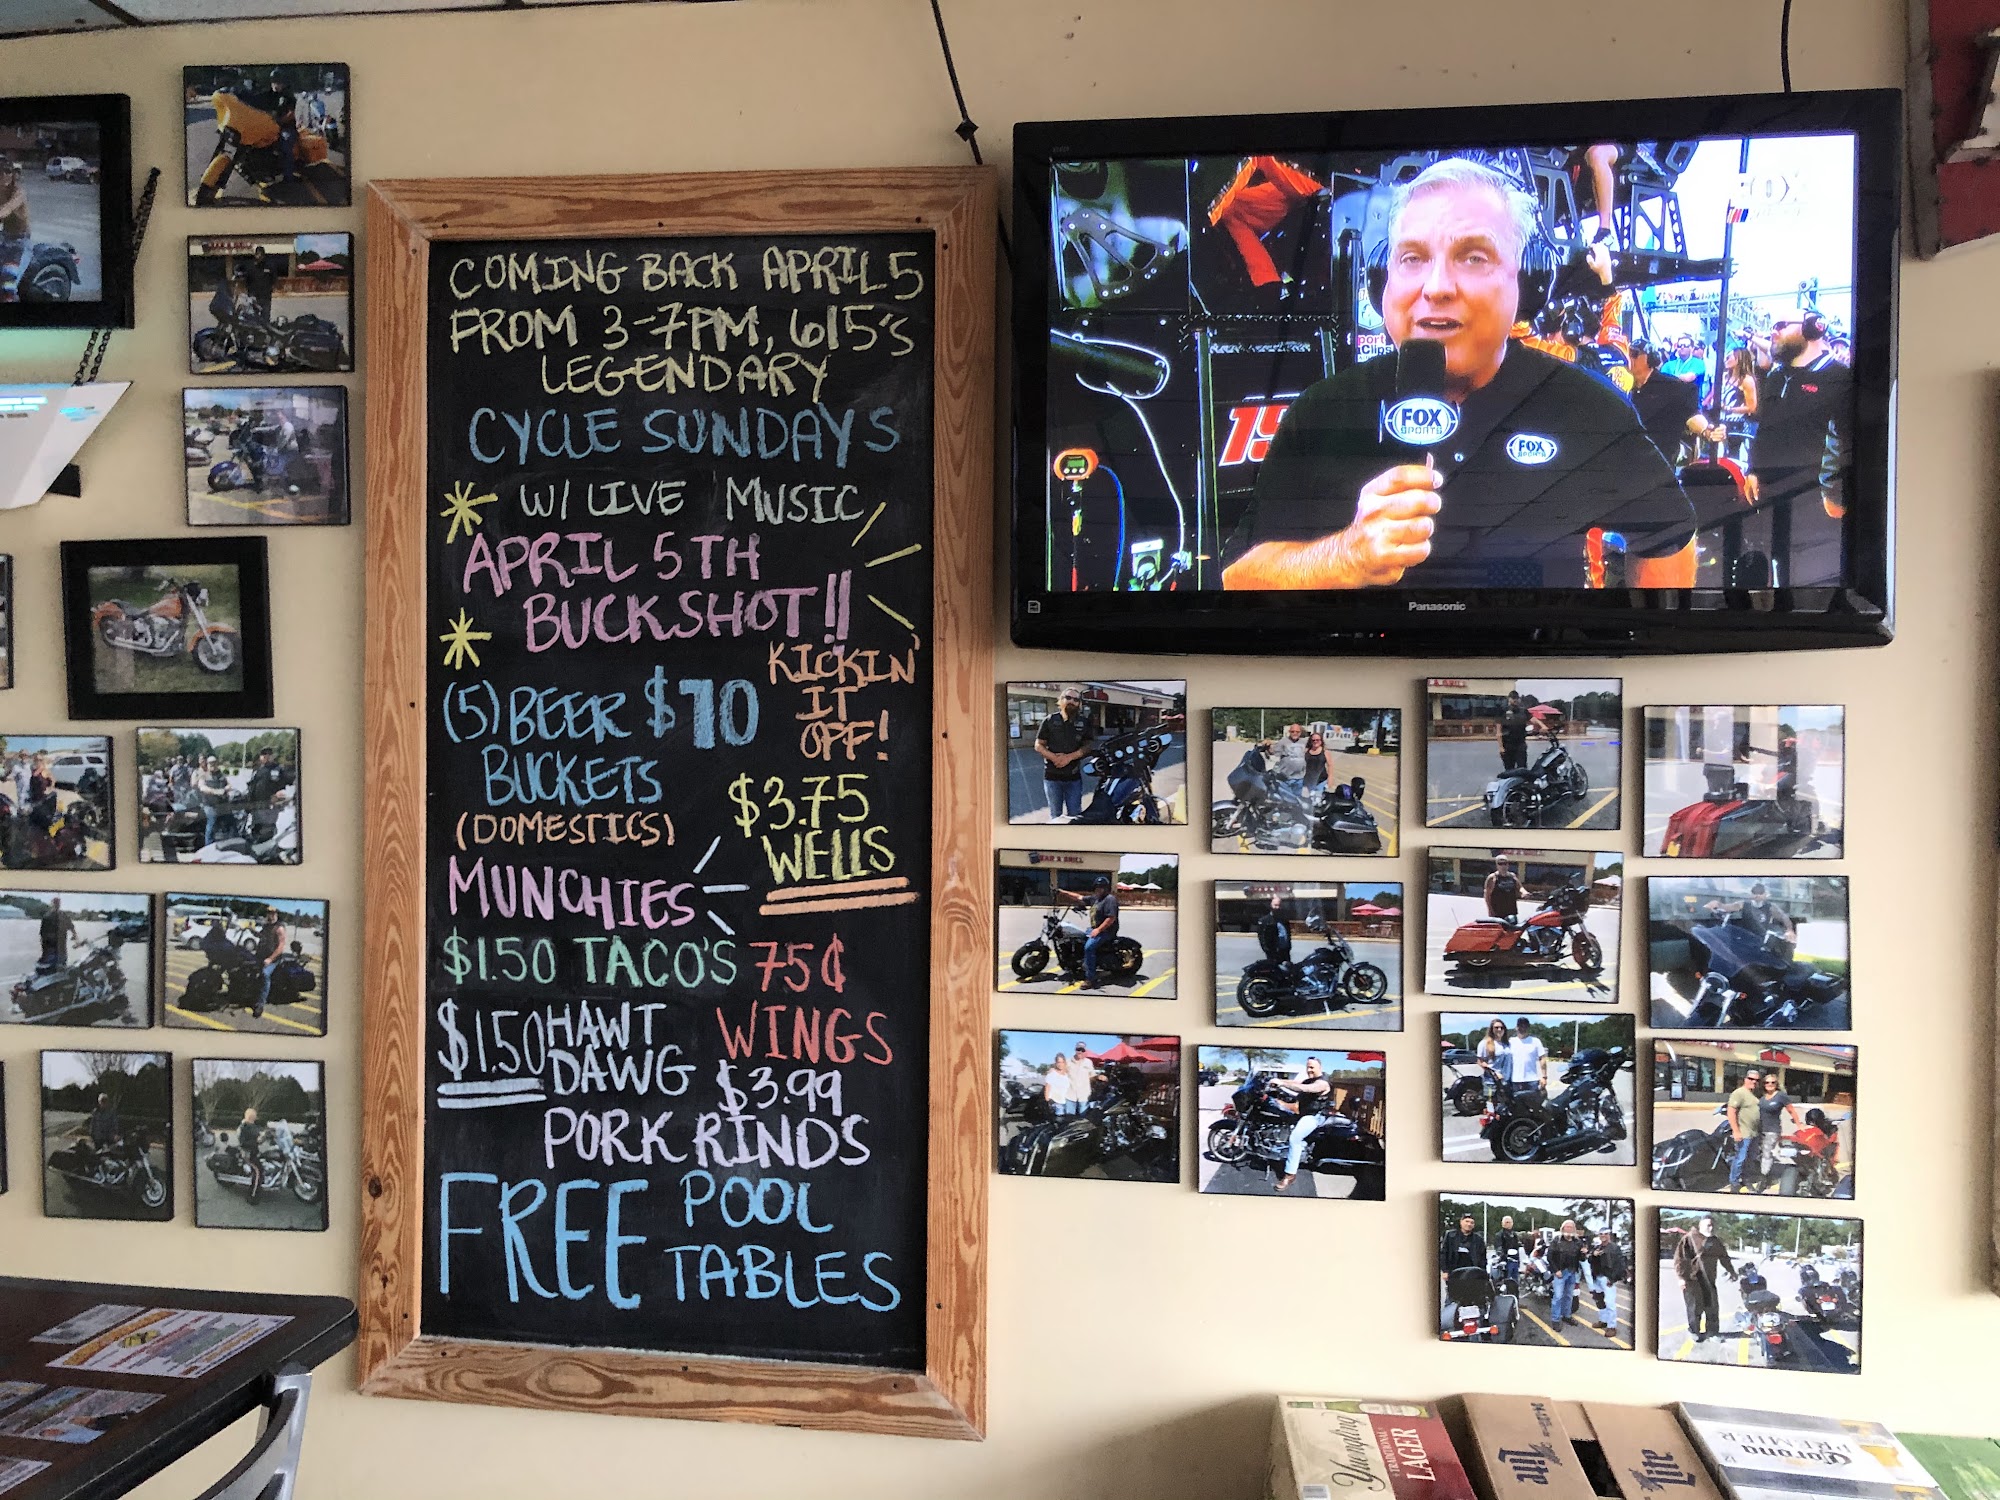 COMING BACK APRIL 5
FROM 3-7PM, 615's
LEGENDARY
CYCLE SUNDAYS
W/ LIVE MUSIC
APRIL 5TH
BUCKSHOT!!
KICKIN'
IT
OFF!
(5) BEER $10
BUCKETS
(DOMESTICS)
$3.75
WELLS
MUNCHIES
$1.50 TACO'S
75¢
WINGS
$1.50 HAWT
DAWG
$3.99
PORK RINDS
FREE POOL
TABLES
FOX
SPORTS
FOX
SPORTS
FOX
15
Clips
Panasonic
Yuengling
TRADITIONAL
LAGER
Lite
Lite
Corona
PREMIER